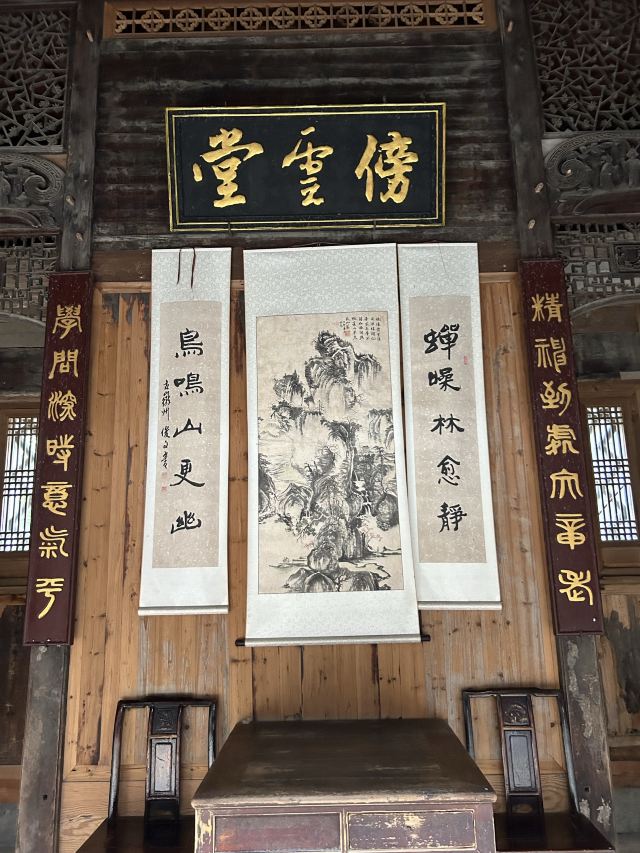 傍雲堂
精神到處文章老
學問深時意氣平
蟬噪林愈靜
鳥鳴山更幽